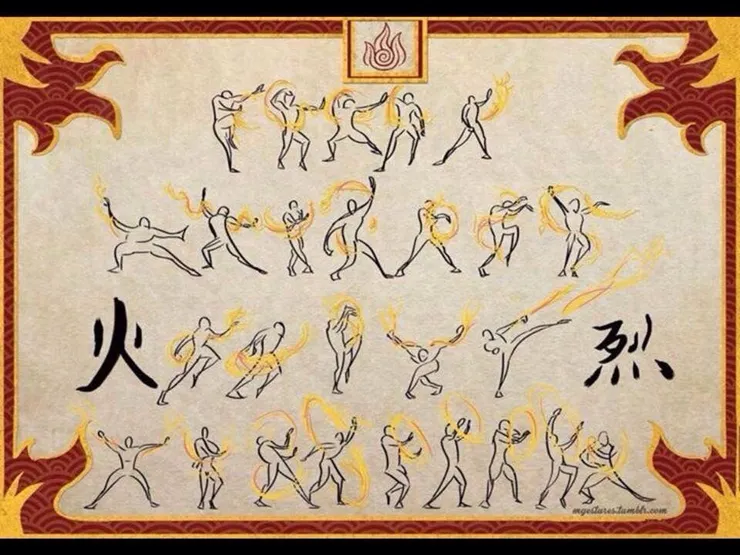 火 烈
mgestures.tumblr.com